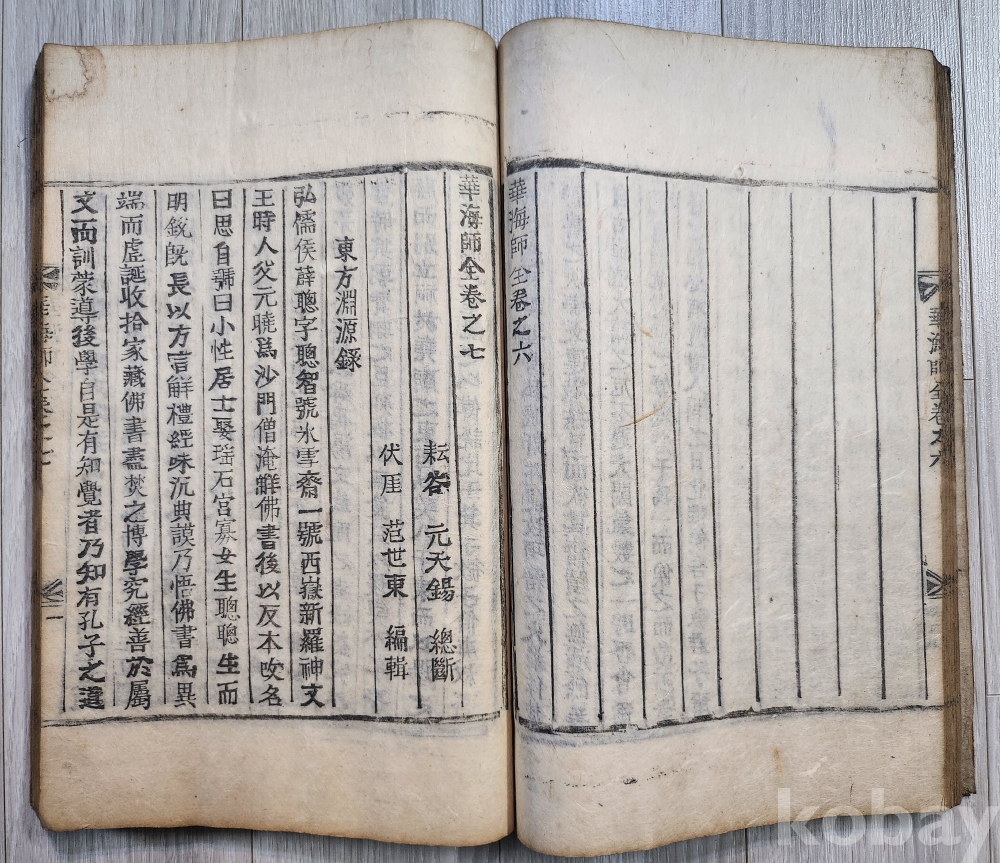 華海師全卷之六
華海師全卷之六
華海師全卷之七
耘谷 元天錫 總斷
伏厓 范世東 編輯
東方淵源錄
弘儒侯薛聰字聰智號氷雪齋一號西嶽新羅神文
王時人父元曉爲沙門僧淹鮮佛書後以反本改名
曰思自號曰小性居士娶瑶石宮寡女生聰聰生而
明銳旣長以方言鮮禮經味沉典謨乃悟佛書爲異
端而虛誕收拾家藏佛書盡焚之博學究經善於屬
文而訓蒙導後學自是有知覺者乃知有孔子之道
kobay